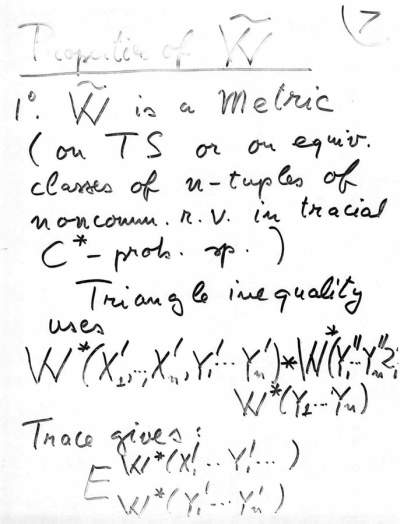 7
Properties of W̃
1°. W̃ is a Metric
(on TS or on equiv.
classes of n-tuples of
noncomm. r. v. in tracial
C*- prob. sp. )
Triangle inequality
uses
W*(X'₁,..,X'ₙ,Y'₁...Y'ₙ) * W*(Y''₁...Y''ₙ,
W*(Y₁...Yₙ)
Trace gives:
E W*(X'₁...Y'₁...)
W*(Y'₁...Y'ₙ)